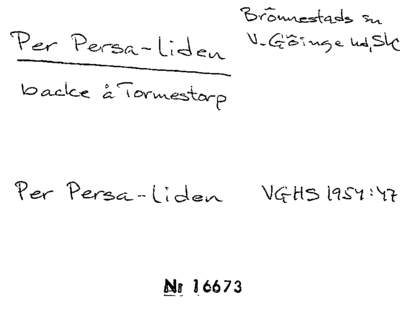 Per Persa-liden
Brönnestads sn
V. Göinge hd, Sk
backe å Tormestorp
Per Persa-liden VGHS 1954:47
Nr 16673